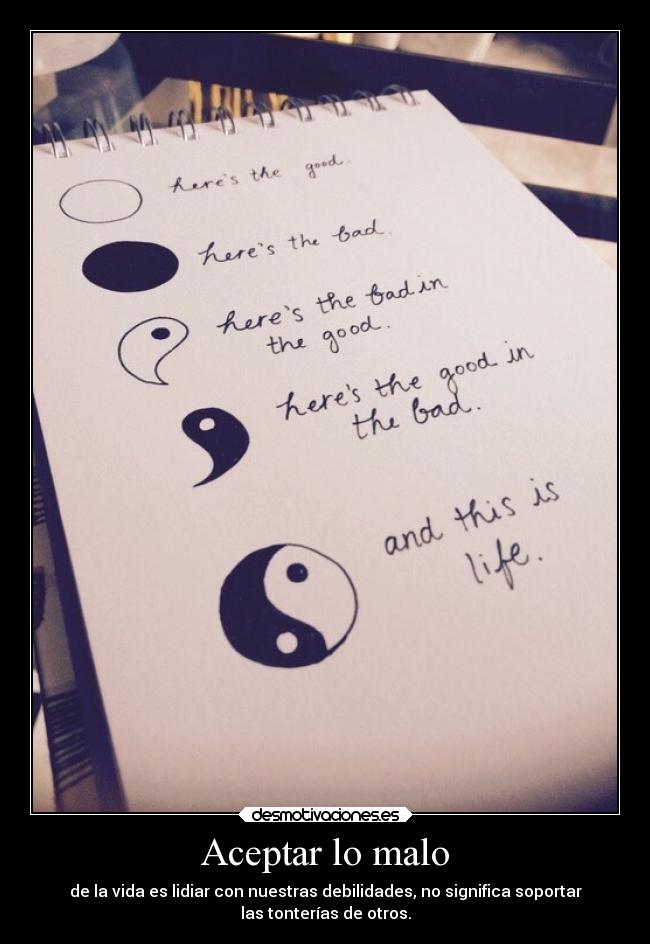 here's the good.
here's the bad.
here's the bad in
the good.
here's the good in
the bad.
and this is
life.
desmotivaciones.es
Aceptar lo malo
de la vida es lidiar con nuestras debilidades, no significa soportar
las tonterías de otros.